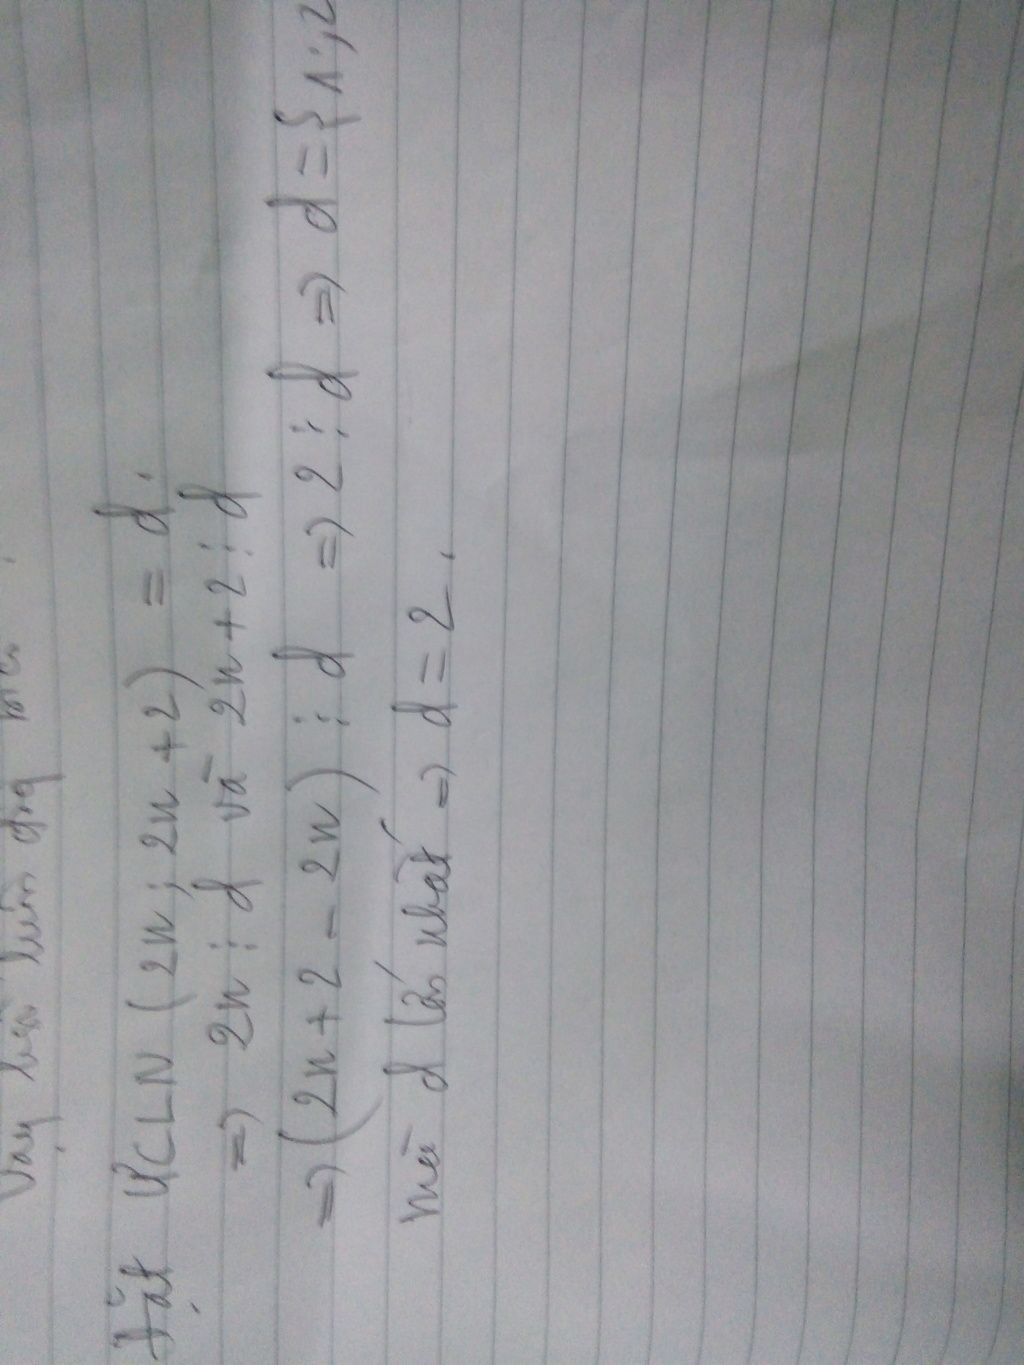 Vậy luôn
Đặt ƯCLN (2n ; 2n + 2) = d.
=> 2n ⋮ d và 2n + 2 ⋮ d
=> (2n + 2 - 2n) ⋮ d => 2 ⋮ d => d = {1 ; 2
mà d lớn nhất => d = 2.